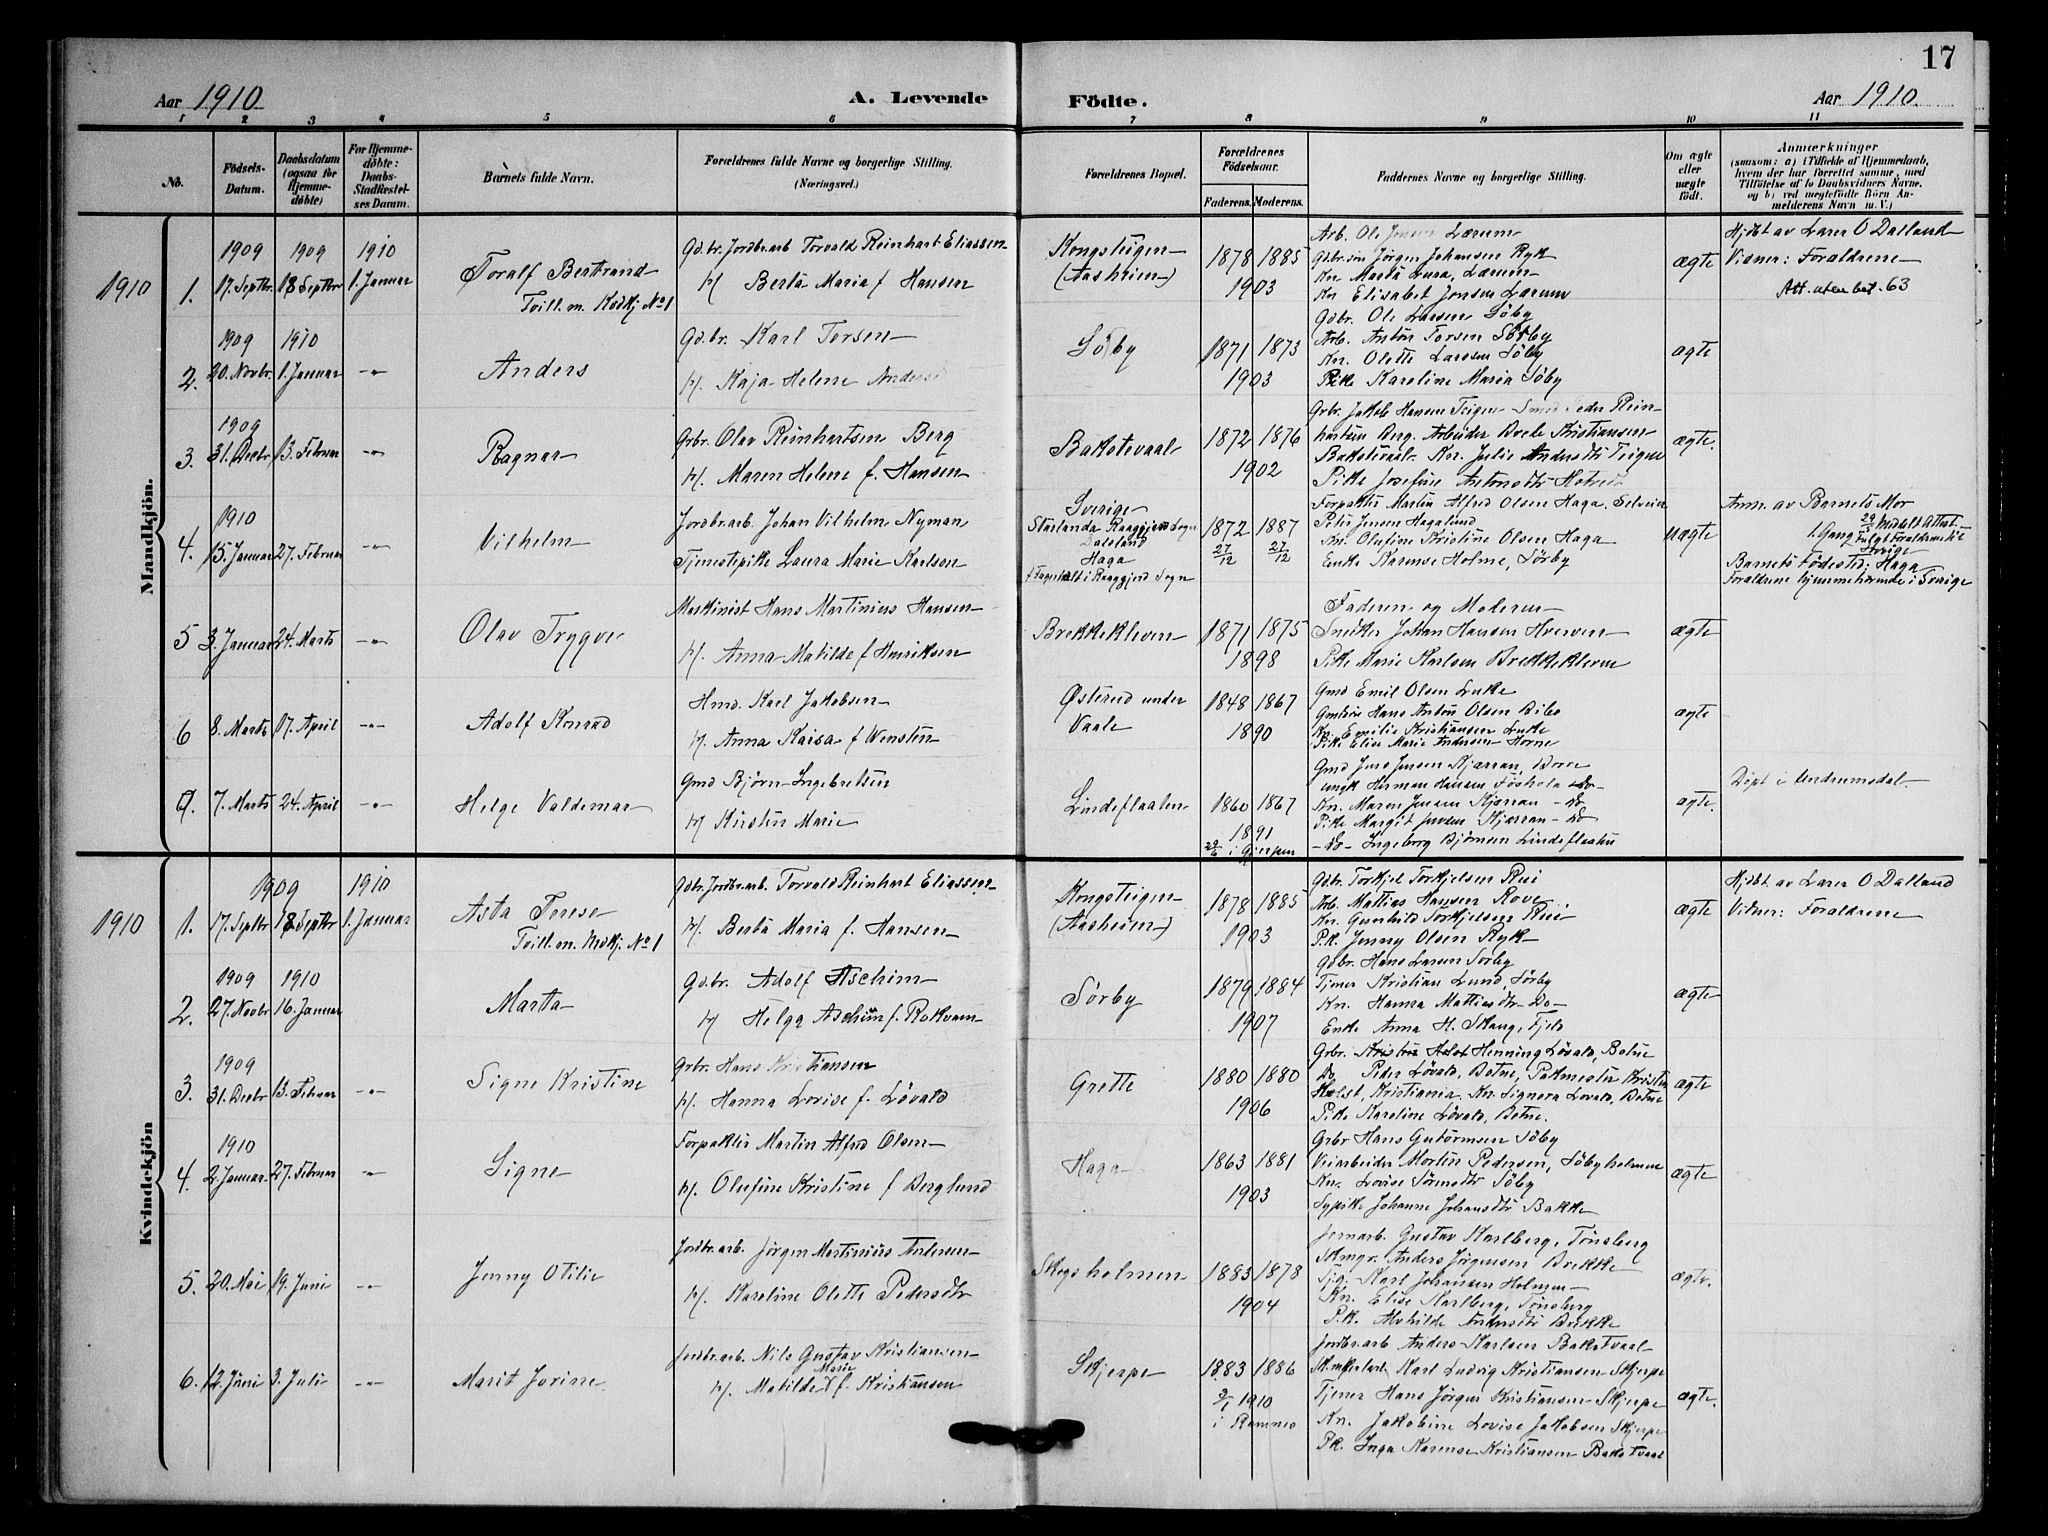 17
Aar 1910
A. Levende
Födte.
Aar 1910
1 2 3 4 5 6 7 8 9 10 11
No.
Födsels-Datum.
Daabsdatum (ogsaa for Hjemme-döbte)
For Hjemme-döbte: Daabs-Stadfæstel-ses Datum.
Barnets fulde Navn.
Forældrenes fulde Navne og borgerlige Stilling. (Næringsvei.)
Forældrenes Bopæl.
Forældrenes Födselsaar.
Faderens. Moderens.
Faddernes Navne og borgerlige Stilling.
Om ægte eller uægte födt.
Anmærkninger
(saasom: a) i Tilfælde af Hjemmedaab, hvem der har forrettet samme, med Tilföielse af to Daabsvidners Navne, og b) ved uegtefödte Börn An-melderens Navn m. V.)
Mandkjön.
1910
1.
1909 17. Septbr.
1909 18 Septbr
1910 1. Januar
Toralf Bertrand
Tvill. m. Kvdkj No 1
Gd.br. Jordbr.arb Torvald Reinhart Eliassen
H/ Berta Maria f Hansen
Kongsteigen
(Aasheim)
1878 1885
1903
Arb. Ole Jensen Lærum
Gdbr.sön Jörgen Johansen Ryk
Kn Marta Lærum
Kn Elisabet Jensen Lærum
ægte
Hjdbt av Lærer O Dalland
Vidner: Forældrene
Att. uten bet. 63
2.
1909 20. Novbr.
1910 1. Januar
-"-
Anders
Gd.br. Karl Torsen
H/. Kaja Helene
Söby
1871 1873
1903
Gdbr. Ole Larsen Söby
Arb. Anton Torsen Söby
Kn. Olette Larssen Söby
Pike Karoline Maria Söby
ægte
3.
1909 31. Decbr
13. Februar
-"-
Ragnar
Grbr. Olav Reinhartsen Berg
H/. Maren Helene f. Hansen
Bakstevaal
1872 1876
1902
Grbr. Jakob Hansen Teigen Smed Peder Rein-
hartsen Berg. Arbeider Brede Kristiansen
Bakstevaal. Kn. Julie Andersdtr Teigen
Pike Josefine Antonsdtr
ægte.
4.
1910 15. Januar
27. Februar
-"-
Vilhelm
Jordbr.arb. Johan Vilhelm Nyman
Tjenestepike Laura Marie Karlson
Sverige
Dalsland
Haga
1872 1887
27/12 27/12
Forpakter Martin Alfred Olsen Haga.
Peter Jensen Hagalund
Kn. Olufine Kristine Olsen Haga
Enke Karense Holme, Sörby
uægte
Anm. av Barnets Mor
1. Gang
Barnets Födested: Haga
Forældrene hjemmehörende i Sverige
5
3. Januar
24. Marts
-"-
Olav Trygve
Maskinist Hans Martinius Hansen
H/. Anna Matilde f Henriksen
Brekkekleven
1871 1875
1898
Faderen og Moderen
Snekker Johan Hansen
Pike Marie Karlsen Brekkekleven
ægte
6
8. Marts
17. April
-"-
Adolf Konrad
Hmd. Karl Jakobsen
H/. Anna Kaisa f Wensten
Østerud under
Vaale
1848 1867
1890
Gmd Emil Olsen Luke
Hans Anton Olsen
Kn. Emilie Kristiansen Lukke
Pike Elise Marie Andersen Horne
ægte
7.
7. Marts
24. April
-"-
Helge Valdemar
Gmd Björn Ingebretsen
H/ Kirsten Marie
Lindeflaaten
1860 1867
1891
29/6 i Gjerpen
Gmd Jens Jensen Kjærran, Borre
ungk Herman Hansen -Do-
Kn. Maren Jensen Kjærran -Do
Pike Margit Jensen Kjærran -Do
-Do- Ingeborg Björnsen Lindeflaaten
ægte.
Döpt i Undrumsdal.
Kvindekjön
1910
1.
1909 17. Septbr
18 Septbr
1910 1. Januar
Asta Terese
Tvill. m. Mdkj. No 1
Gdbr. Jordbr.arb. Torvald Reinhart Eliassen
H/. Berta Maria f. Hansen
Kongsteigen
(Aasheim)
1878 1885
1903
Gdbr. Torkjel Torkjelsen Rui
Arb. Mattias Hansen Rove
Kn. Gunhild Torkjelsen Rui
P.k. Jenny Olsen Ryk
ægte
Hjdbt av Lærer O Dalland
Vitner: Forældrene
2.
1909 27. Novbr
1910 16. Januar
Marta
Gdbr. Adolf Aschim
H/ Helga Aschim f. Rokvam
Sörby
1879 1884
1907
Gdbr. Hans Larsen Sörby
Tjener Kristian Lund, Sörby
Kn. Hanna Mattiasdtr -Do-
Enke Anna H. Skaug, Fjeld
ægte
3.
1909 31. Decbr
13. Februar
-"-
Signe Kristine
Grbr. Hans Kristiansen
H/. Hanna Lovise f. Lövald
Grette
1880 1880
1906
Grbr. Henning Lövald, Botne
Do. Peder Lövald, Botne, Pakmester Kristen
Holst, Kristiania. Kn. Signora Lövald, Botne
Pike Karoline Lövald, Botne.
ægte
4.
1910 2. Januar
27. Februar
-"-
Signe
Forpakter Martin Alfred Olsen
H/. Olufine Kristine f Berglund
Haga
1863 1881
1903
Grbr Hans Gutormsen Söby
Veiarbeider Morten Pedersen, Söbyholmen
Kn. Lovise Sörensdtr Söby
Sypike Johanne Johansdtr Bakke
ægte
5.
20. Mai
19. Juni
-"-
Jenny Otilie
Jordbr.arb. Jörgen Martinius Andersen
H/. Karoline Olette Pedersdtr
Skogsholmen
1883 1878
1904
Jernarb. Gustav Karlberg, Tönsberg
Skmgr. Anders Jörgensen Brekke
Tjg. Karl Johansen Holmen
Kn. Elise Karlberg, Tönsberg
P.k. Mathilde Andersdtr Brekke
ægte.
6.
12. Juni
3. Juli
-"-
Marit Jorine
Jordbr.arb. Nils Gustav Kristiansen
H/. Matilde Marie f. Kristiansen
Skjerpe
1883 1886
2/1 1910
i Ramnes
Jordbr.arb Anders Karlsen Bakstvaal
Karl Ludvig Kristiansen Skjerpe
Tjener Hans Jörgen Kristiansen Skjerpe
Kn. Jakobine Lovise Jakobsen Skjerpe
Pk. Inga Karense Kristiansen Bakstvaal
ægte.